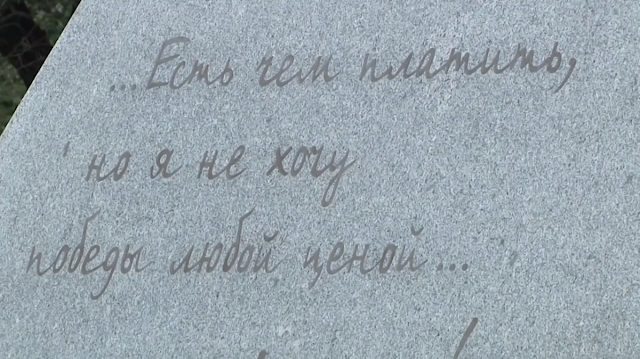 ...Есть чем платить,
но я не хочу
победы любой ценой...